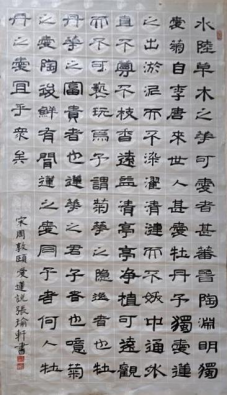 水陸草木之華可愛者甚蕃晉陶淵明獨
愛菊自李唐來世人甚愛牡丹予獨愛蓮
之出淤泥而不染濯清漣而不妖中通外
直不蔓不枝香遠益清亭亭淨植可遠觀
而不可褻玩焉予謂菊華之隱逸者也牡
丹華之富貴者也蓮華之君子者也噫菊
之愛陶後鮮有聞蓮之愛同予者何人牡
丹之愛宜乎衆矣
宋周敦頤愛蓮說張瑜軒書